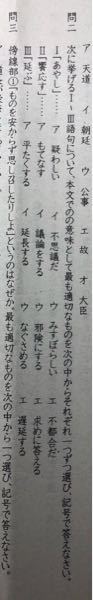 ア 天道 朝廷 ウ 公事 エ 故 オ 大臣
問二 次に挙げるⅠ~Ⅲ語句について、本文での意味として最も適切なものを次の中からそれぞれ一つずつ選び、記号で答えなさい。
Ⅰ「あやし」…… ア 疑わしい イ 不思議だ ウ みすぼらしい エ 不都合だ
Ⅱ「饗応す」…… ア もてなす イ 議論をする ウ 邪険にする エ 求めに答える
Ⅲ「延ぶ」…… ア 平たくする イ 延長する ウ なぐさめる エ 遅延する
問三 傍線部①「ものを安からず思し召したりしよ」というのはなぜか。最も適切なものを次の中から一つ選び、記号で答えなさい。